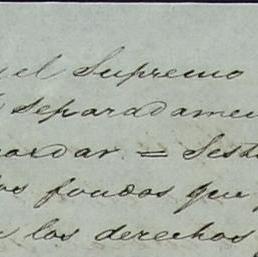 el Supremo
separadamen
cordar = Sesh
los fondos que
los derechos